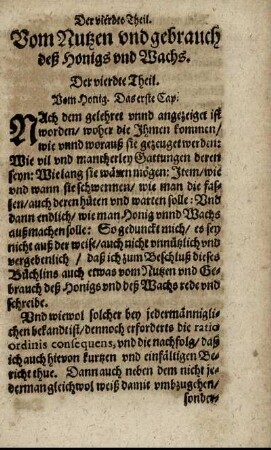 Der vierdte Theil.
Vom Nutzen vnd gebrauch
deß Honigs vnd Wachs.
Der vierdte Theil.
Vom Honig. Das erste Cap:
NAch dem gelehret vnnd angezeiget ist
worden/ woher die Ihmen kommen/
wie vnnd worauß sie gezeuget werden:
Wie vil vnd mancherley Gattungen deren
seyn: Wie lang sie wären mögen: Item/ wie
vnd wann sie schwermen/ wie man die fas-
sen/ auch deren hüten vnd warten solle: Vnd
dann endlich/ wie man Honig vnnd Wachs
außmachen solle: So gedunckt mich/ es sey
nicht auß der weise/ auch nicht vnnützlich vnd
vergebenlich / daß ich zum Beschluß dieses
Büchlins auch etwas vom Nutzen vnd Ge-
brauch deß Honigs vnd deß Wachs rede vnd
schreibe.
Vnd wiewol solcher bey jedermänniglich
en bekandt ist/ dennoch erforderts die ratio
ordinis consequens, vnd die nachfolg/ daß
ich auch hievon kurtzen vnd einfältigen Be-
richt thue. Dann auch neben dem nicht je-
dermangleichwol weiß damit vmbzugehen/
sonder-